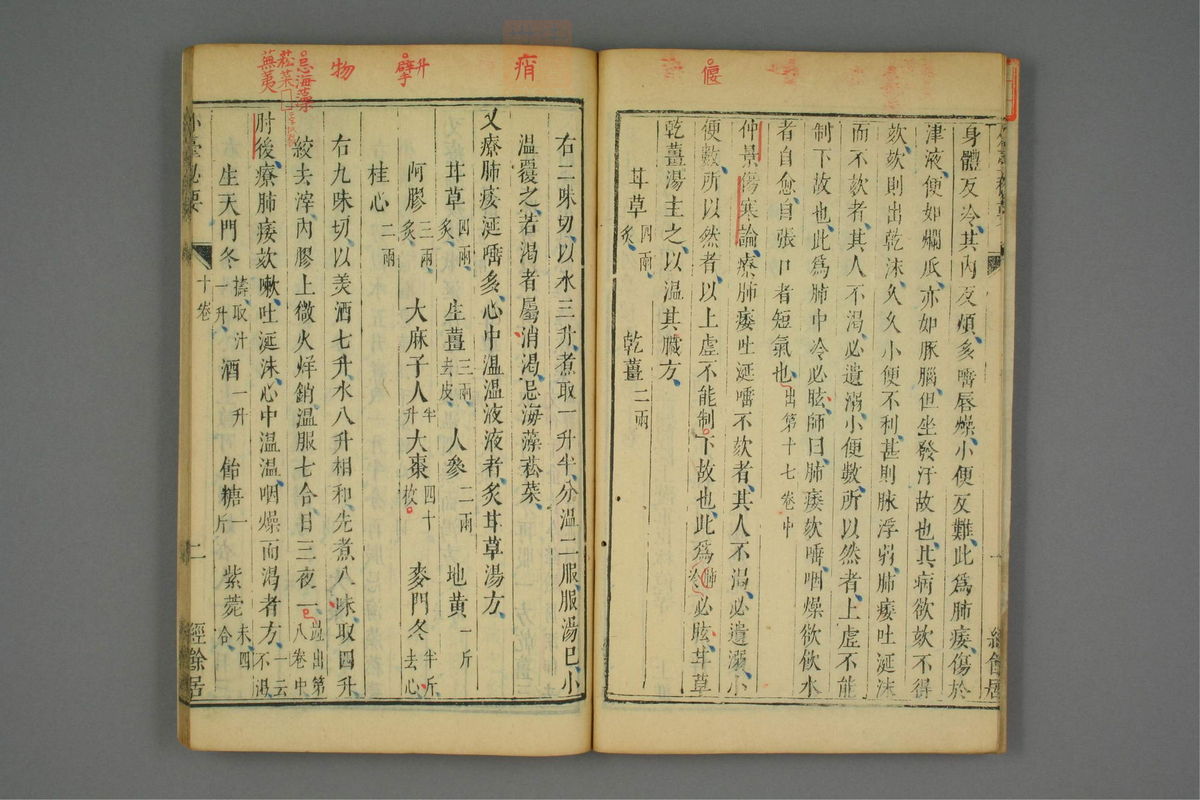 偃
身體反冷其内反煩多唾唇燥小便反難此爲肺痿傷於
津液便如爛瓜亦如豚腦但坐發汗故也其病欲欬不得
欬欬則出乾沫久久小便不利甚則脉浮弱肺痿吐涎沫
而不欬者其人不渴必遺溺小便數所以然者上虛不能
制下故也此爲肺中冷必眩師曰肺痿欬唾咽燥欲飲水
者自愈自張口者短氣也出第十七卷中
仲景傷寒論療肺痿吐涎唾不欬者其人不渴必遺溺小
便數所以然者以上虛不能制下故也此爲肺冷必眩甘草
乾薑湯主之以温其臟方
甘草四兩炙 乾薑二兩
痟
升
擘
物
忌海藻
菘菜
蕪荑
右二味切以水三升煮取一升半分温二服服湯已小
温覆之若渴者屬消渴忌海藻菘菜
又療肺痿涎唾多心中温温液液者炙甘草湯方
甘草四兩炙 生薑三兩去皮 人參二兩 地黄一斤
阿膠三兩炙 大麻子人半升 大棗四十枚 麥門冬半斤去心
桂心二兩
右九味切以美酒七升水八升相和先煮八味取四升
絞去滓内膠上微火烊銷温服七合日三夜一並出第八卷中
肘後療肺痿欬嗽吐涎沫心中温温咽燥而渴者方一云不渴
生天門冬擣取汁一升 酒一升 飴糖一斤 紫菀末四合
外臺祕要 十卷 二 經餘居